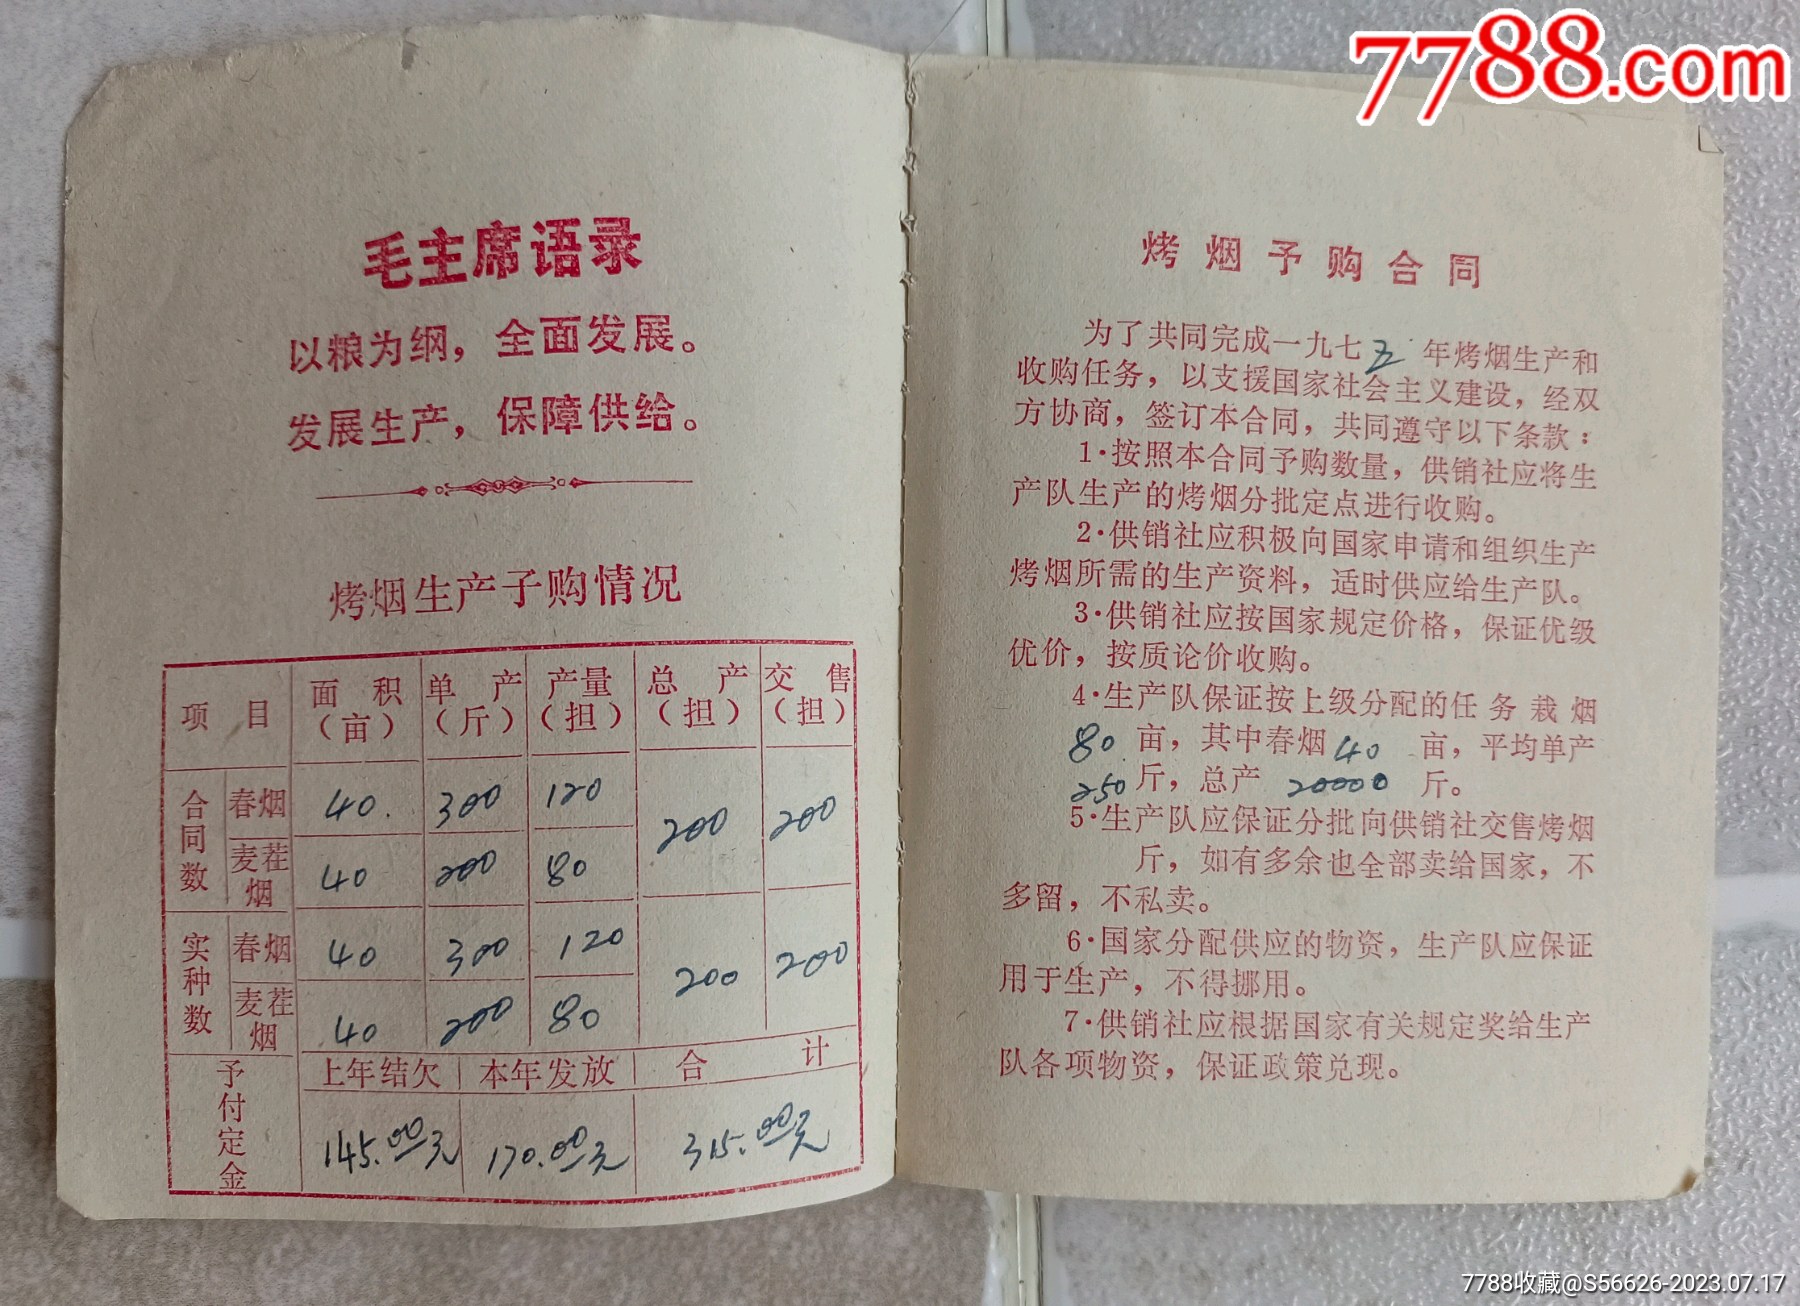 7788.com
毛主席语录
以粮为纲，全面发展。
发展生产，保障供给。
烤烟生产予购情况
项目 面积（亩） 单产（斤） 产量（担） 总产（担） 交售（担）
合同数 春烟 40. 300 120 200 200
麦茬烟 40 200 80
实种数 春烟 40 300 120 200 200
麦茬烟 40 200 80
予付定金 上年结欠 本年发放 合计
145.00元 170.00元 315.00元
烤烟予购合同
为了共同完成一九七五年烤烟生产和
收购任务，以支援国家社会主义建设，经双
方协商，签订本合同，共同遵守以下条款：
1·按照本合同予购数量，供销社应将生
产队生产的烤烟分批定点进行收购。
2·供销社应积极向国家申请和组织生产
烤烟所需的生产资料，适时供应给生产队。
3·供销社应按国家规定价格，保证优级
优价，按质论价收购。
4·生产队保证按上级分配的任务栽烟
80亩，其中春烟40亩，平均单产
250斤，总产20000斤。
5·生产队应保证分批向供销社交售烤烟
斤，如有多余也全部卖给国家，不
多留，不私卖。
6·国家分配供应的物资，生产队应保证
用于生产，不得挪用。
7·供销社应根据国家有关规定奖给生产
队各项物资，保证政策兑现。
7788收藏@S56626-2023.07.17